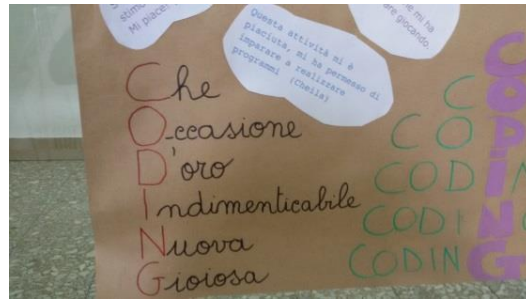 stimo
Mi piace
Questa attività mi è
piaciuta, mi ha permesso di
imparare a realizzare
programmi (Cheila)
mi ha
are giocando.
Che
Occasione
D'oro
Indimenticabile
Nuova
Gioiosa
C
CO
COD
CODI
CODIN
CODING